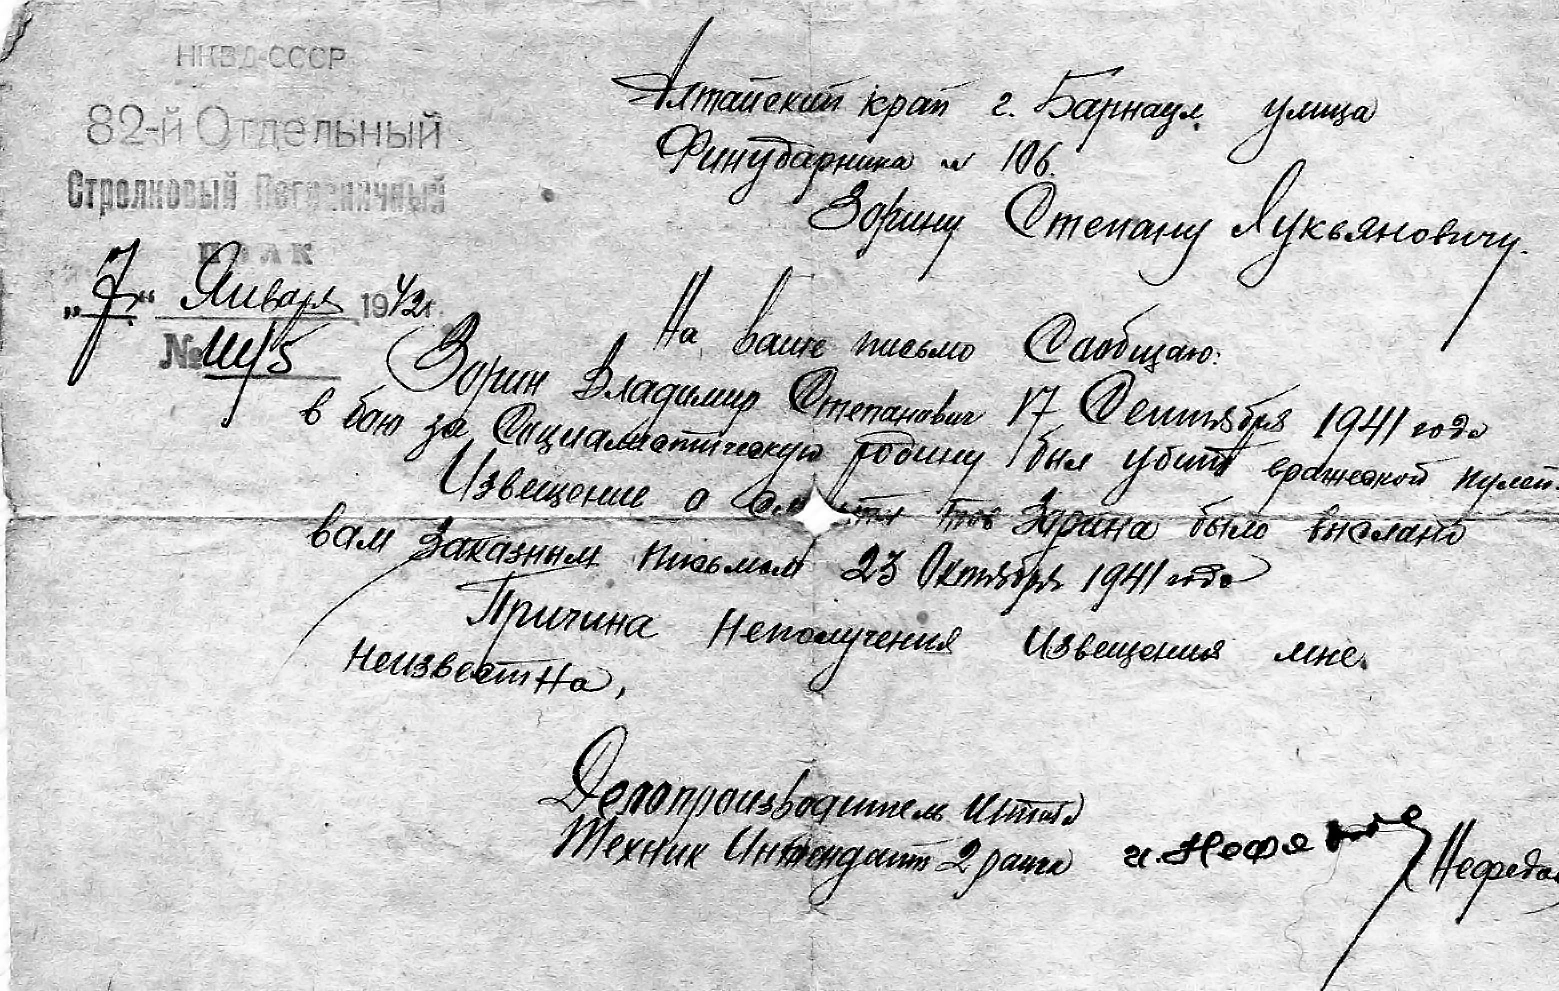 НКВД-СССР
82-й Отдельный
Стрелковый Пограничный
ПОЛК
„7“ Января 1942г.
№
Алтайский край г. Барнаул улица
Финударника № 106.
Зорину Степану Лукьяновичу.
На ваше письмо Сообщаю:
Зорин Владимир Степанович 17 Сентября 1941 года
в бою за Социалистическую родину был убит вражеской пулей.
Извещение о смерти тов Зорина было выслано
вам Заказным письмом 23 Октября 1941 года
Причина Неполучения извещения мне
неизвестна,
Делопроизводитель Штаба
Техник Интендант 2 ранга